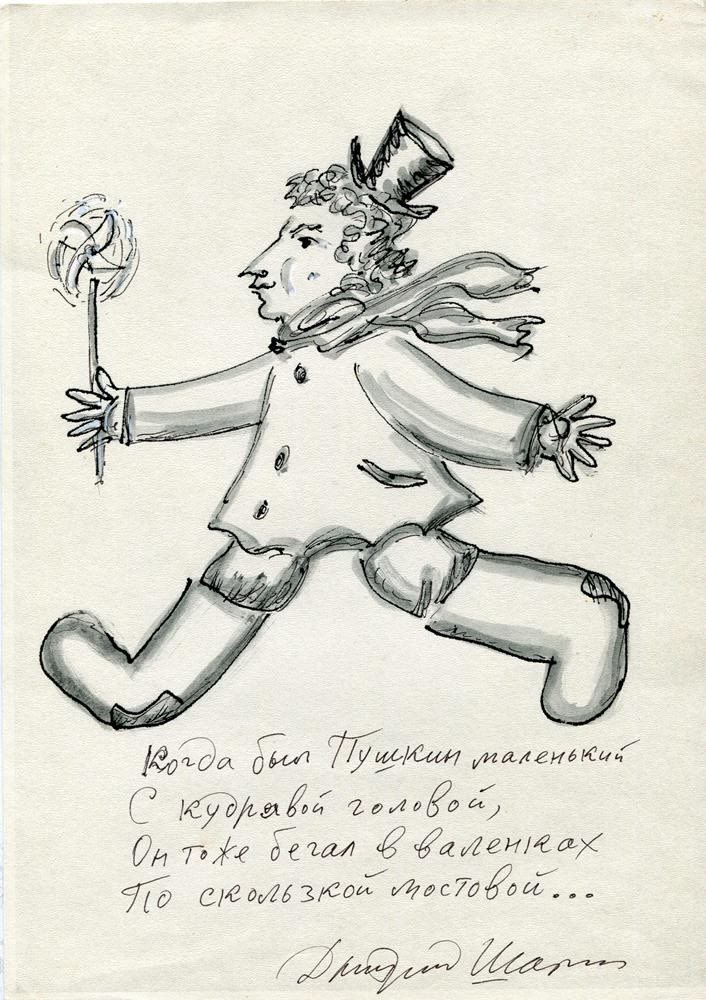 Когда был Пушкин маленький
С кудрявой головой,
Он тоже бегал в валенках
По скользкой мостовой...
Дмитрий Шагин